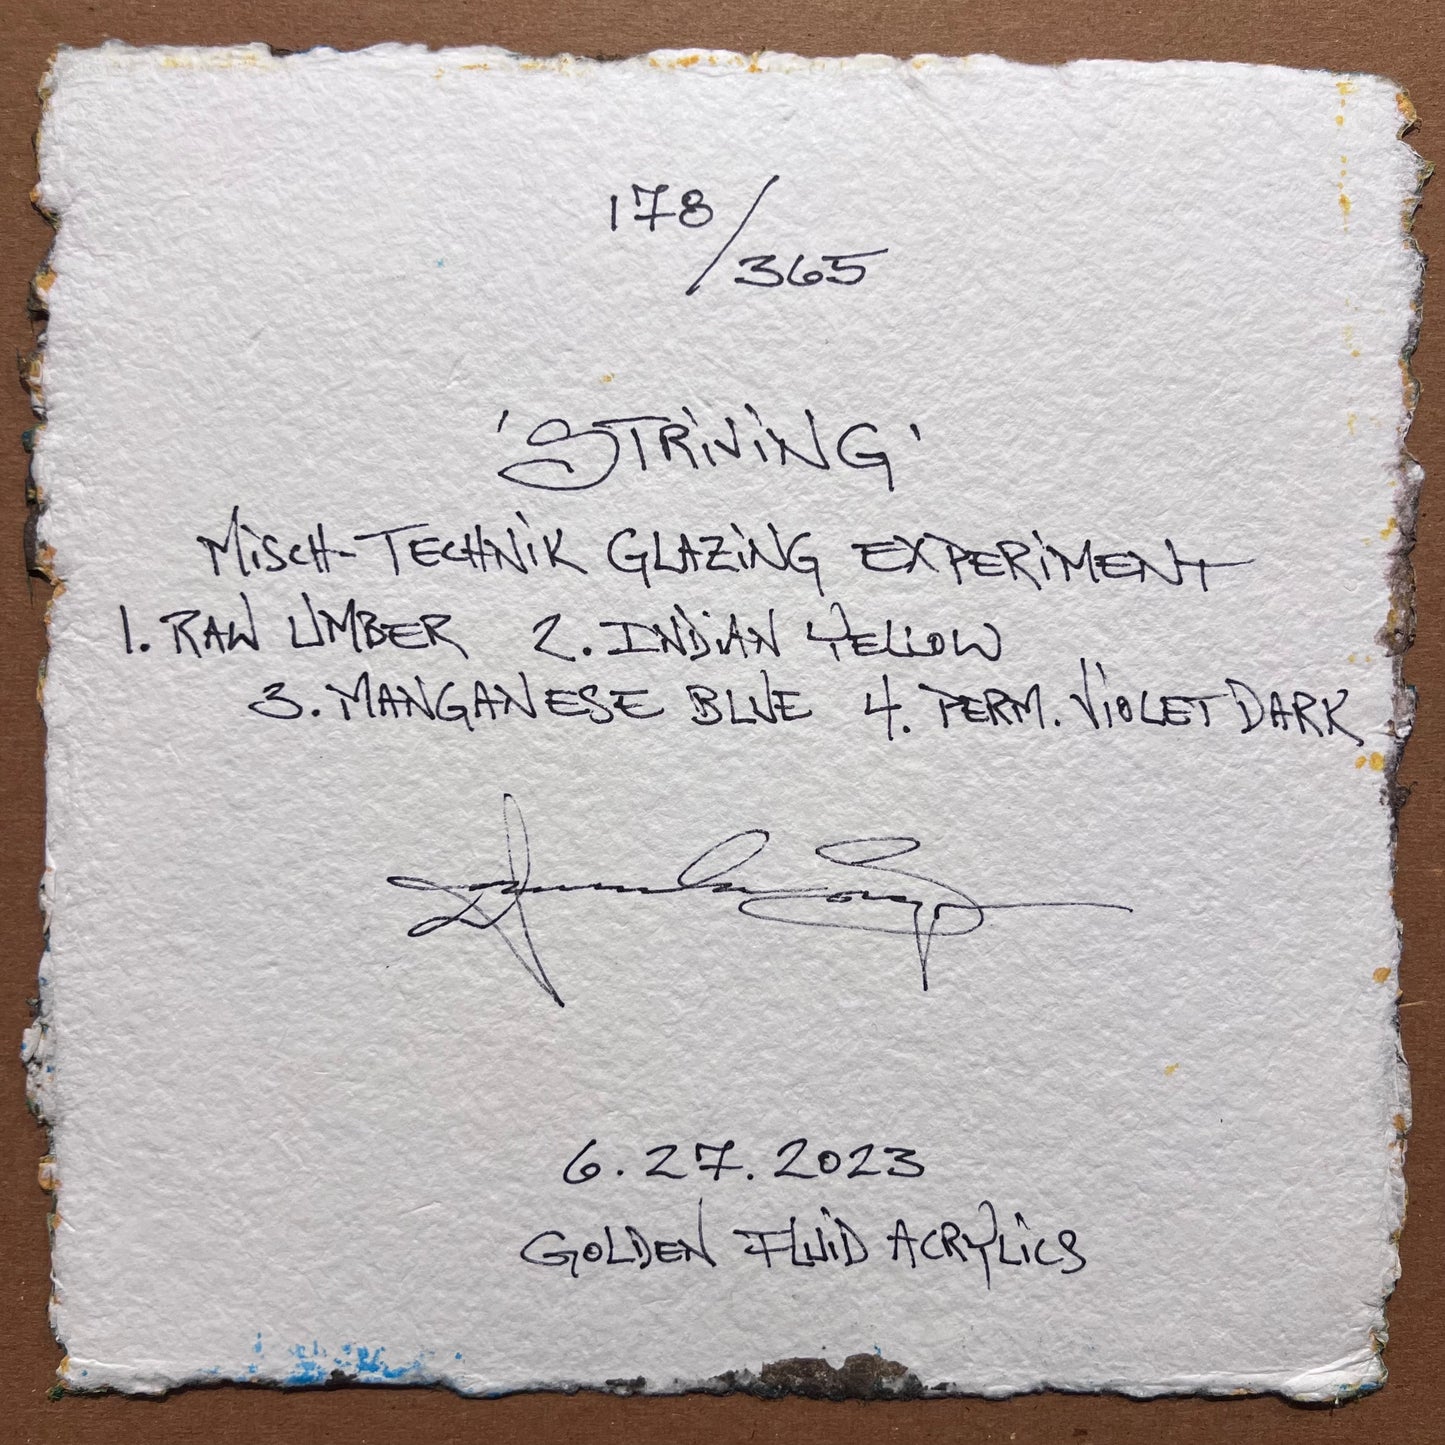 178/365
'STRIVING'
MISCH-TECHNIK GLAZING EXPERIMENT
1. RAW UMBER 2. INDIAN YELLOW
3. MANGANESE BLUE 4. PERM. VIOLET DARK
6.27.2023
GOLDEN FLUID ACRYLICS